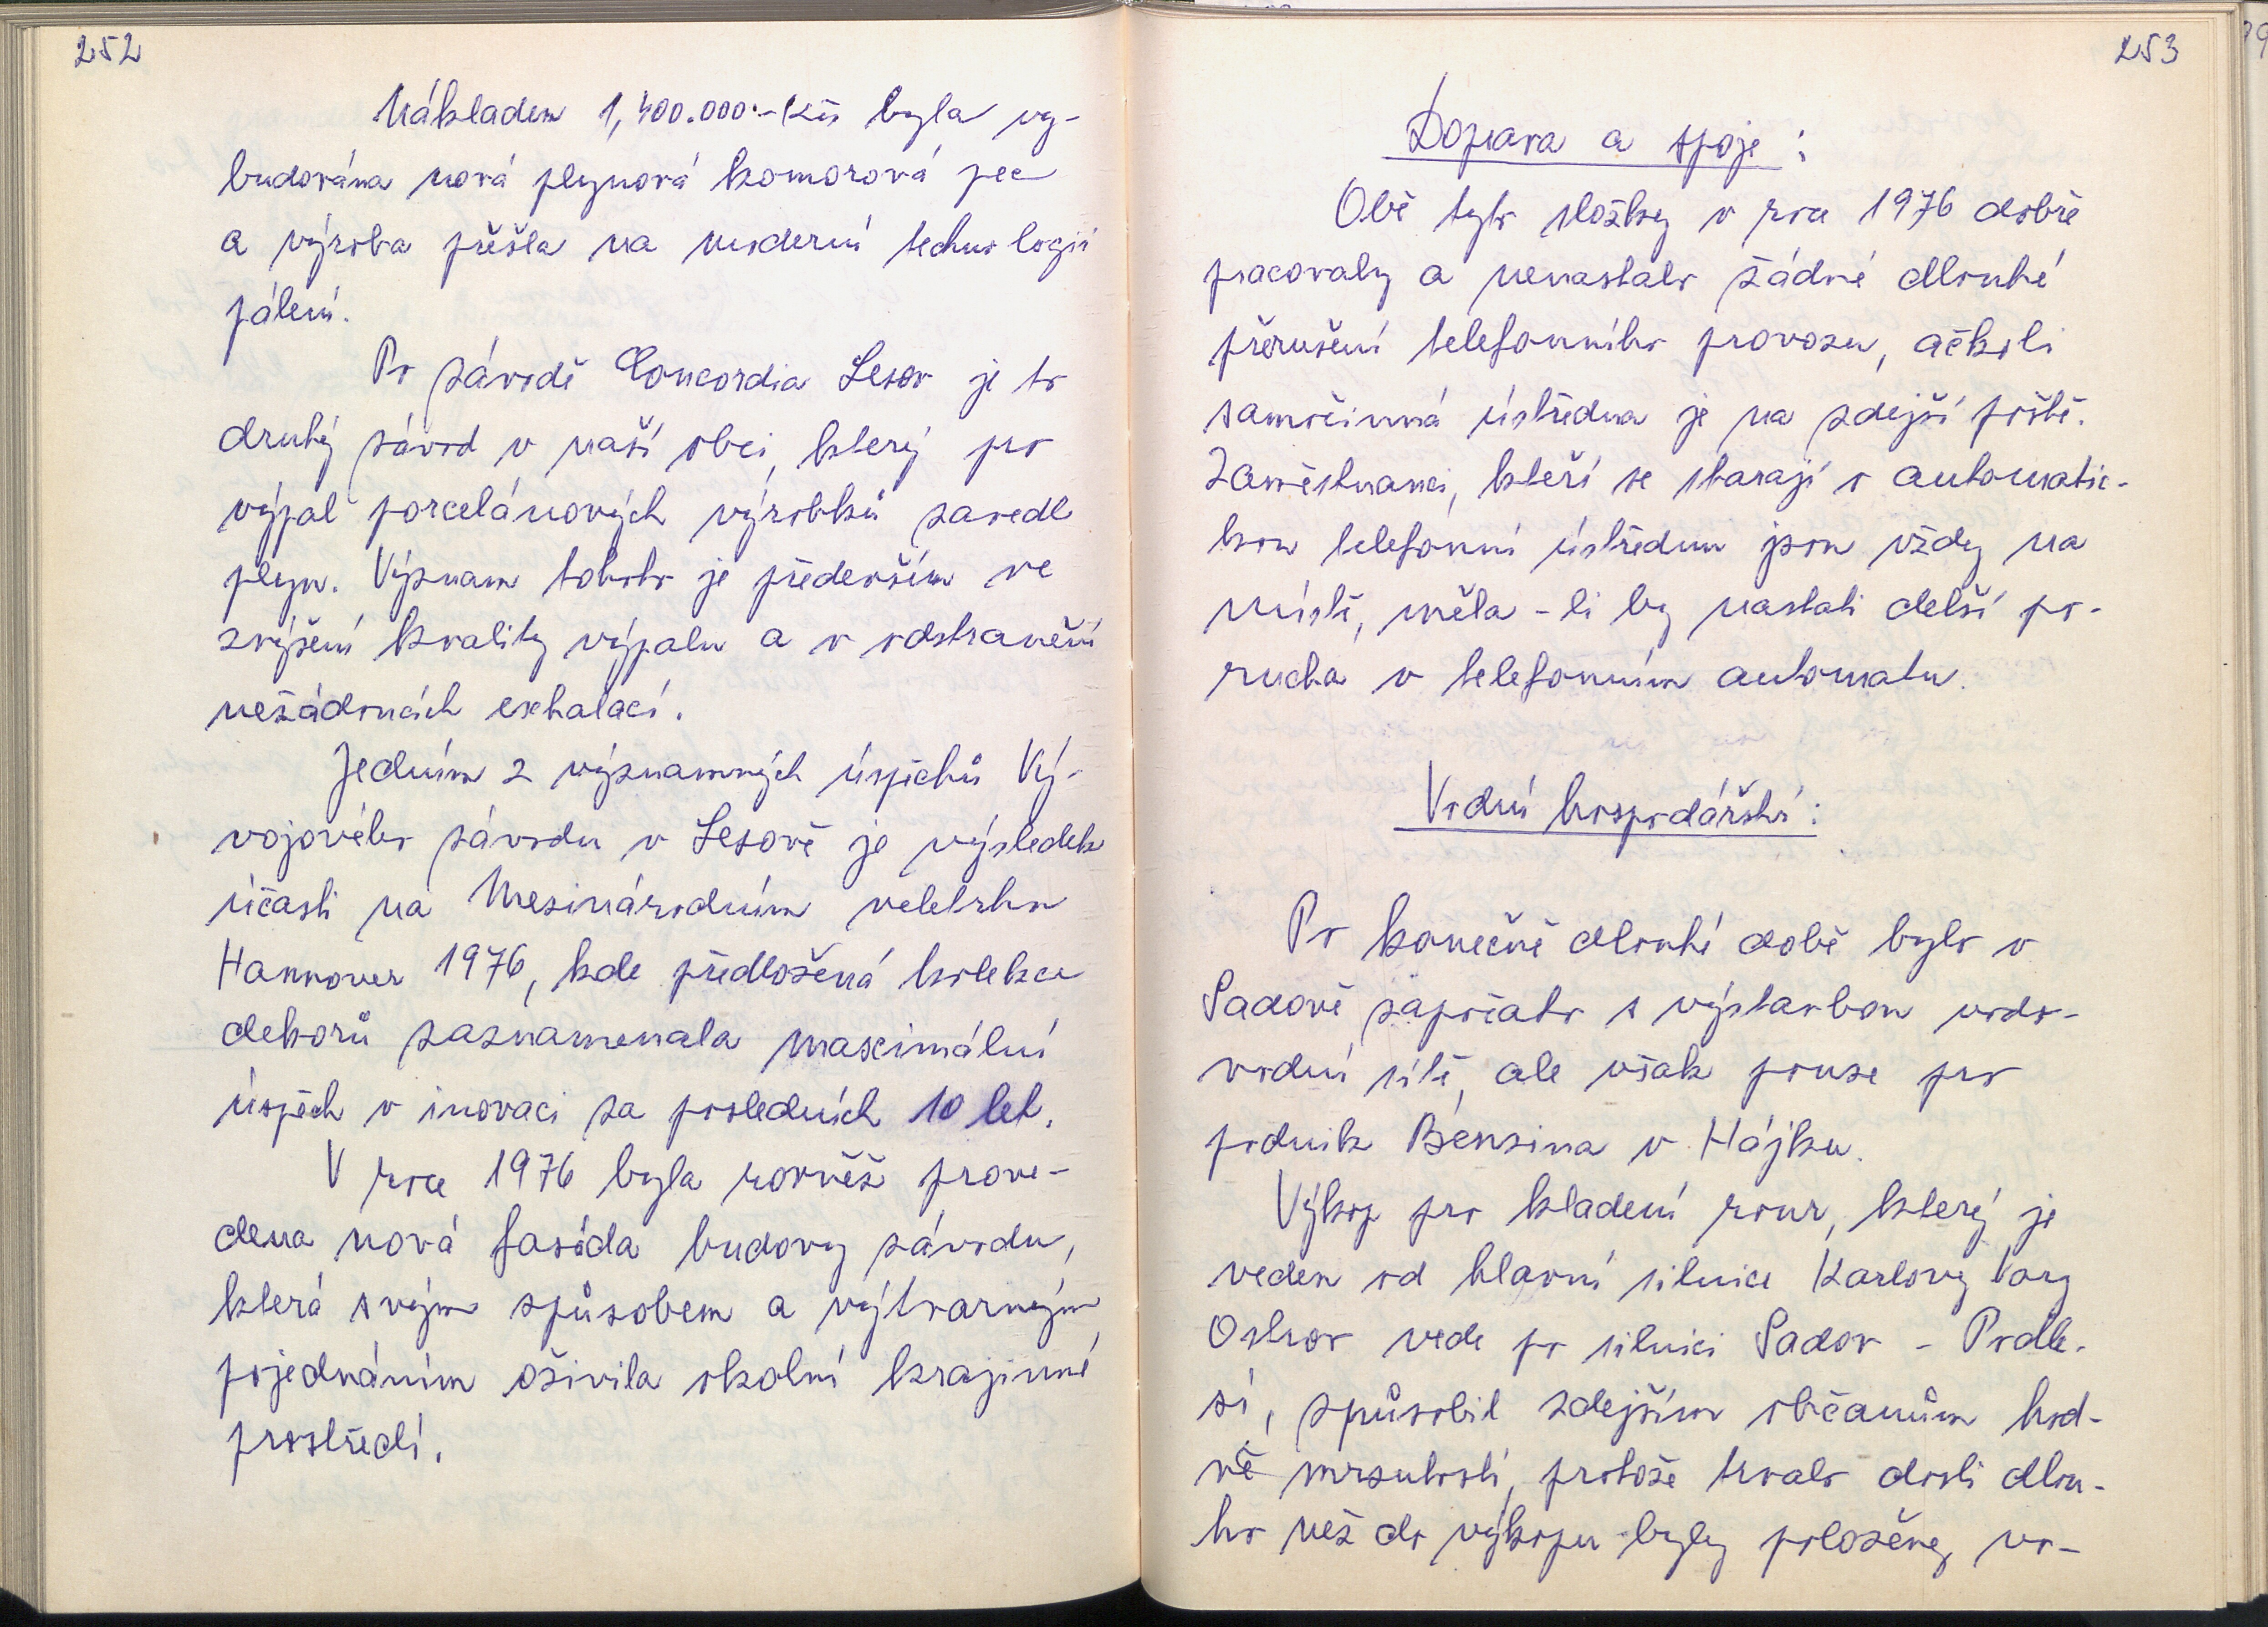 252
Nákladem 1,400.000.-Kčs byla vy-
budována nová plynová komorová pec
a výroba přešla na moderní technologii
pálení.
Po závodě Concordia Lesov je to
druhý závod v naší obci, který pro
výpal porcelánových výrobků zavedl
plyn. Význam tohoto je především ve
zvýšení kvality výpalu a v odstranění
nežádoucích exhalací.
Jedním z významných úspěchů Vý-
vojového závodu v Lesově je výsledek
účasti na Mezinárodním veletrhu
Hannover 1976, kde předložená kolekce
dekorů zaznamenala maximální
úspěch v inovaci za posledních 10 let.
V roce 1976 byla rovněž prove-
dena nová fasáda budovy závodu,
která svým způsobem a výtvarným
pojednáním oživila okolní krajinné
prostředí.
253
Doprava a spoje:
Obě tyto složky v roce 1976 dobře
pracovaly a nenastalo žádné dlouhé
přerušení telefonního provozu, ačkoli
samočinná ústředna je na zdejší poště.
Zaměstnanci, kteří se starají o automatic-
kou telefonní ústřednu jsou vždy na
místě, měla-li by nastati delší po-
rucha v telefonním automatu.
Vodní hospodářství:
Po konečně dlouhé době bylo v
Sadově započato s výstavbou vodo-
vodní sítě, ale však pouze pro
podnik Benzina v Hájku.
Výkop pro kladení rour, který je
veden od hlavní silnice Karlovy Vary
Ostrov vede po silnici Sadov - Podle-
sí, způsobil zdejším občanům hod-
ně mrzutostí, protože trvalo dosti dlou-
ho než do výkopu byly položeny vo-